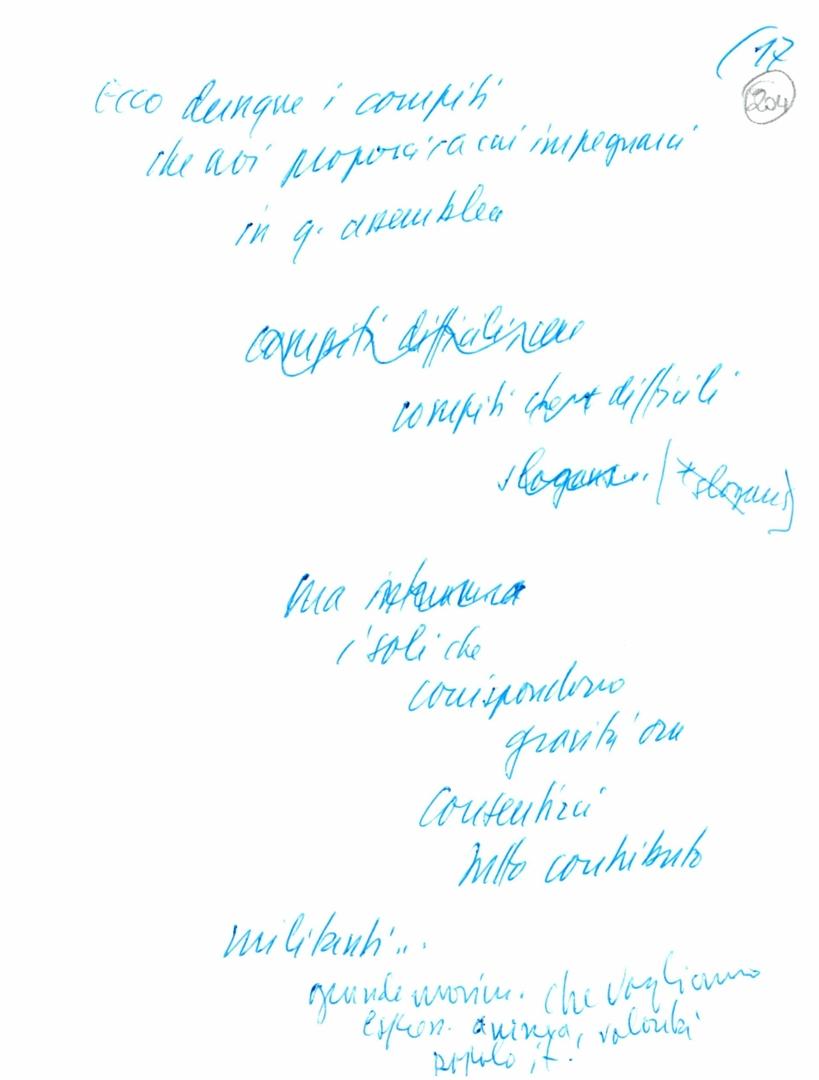 (17
204
Ecco dunque i compiti
che a voi proporci a cui impegnarci
in q. assemblea
compiti difficili
compiti difficili
slogans.. (*slogans)
ma
i soli che
corrispondono
gravità ora
consentirci
tutto contributo
militanti...
grande movim. che vogliamo
espress. anima, volontà
popolo it.